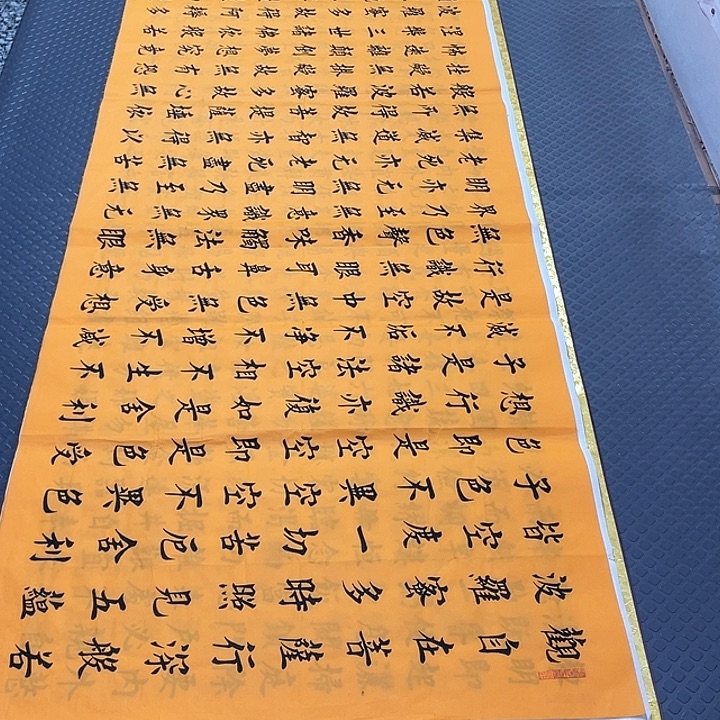 觀自在菩薩行深般若
波羅蜜多時照見五蘊
皆空度一切苦厄舍利
子色不異空空不異色
色即是空空即是色受
想行識亦復如是舍利
子是諸法空相不生不
滅不垢不淨不增不減
是故空中無色無受想
行識無眼耳鼻舌身意
無色聲香味觸法無眼
界乃至無意識界無无
明亦无無明盡乃至無
老死亦无老死盡無苦
集滅道無智亦無得以
無所得故菩提薩埵依
般若波羅蜜多故心無
挂礙無掛礙故無有恐
怖遠離顛倒夢想究竟
涅槃三世諸佛依般若
波羅蜜多故得阿耨多